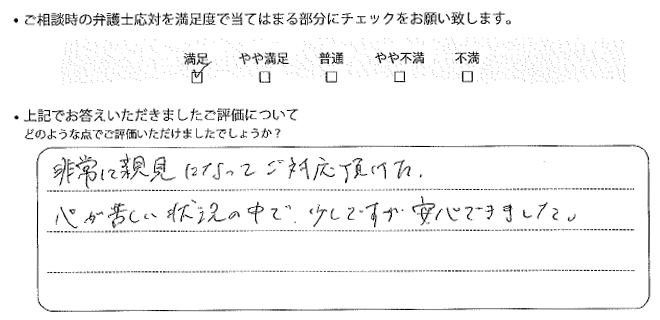 ・ご相談時の弁護士応対を満足度で当てはまる部分にチェックをお願い致します。
満足 やや満足 普通 やや不満 不満
☑ ☐ ☐ ☐ ☐
・上記でお答えいただきましたご評価について
どのような点でご評価いただけましたでしょうか？
非常に親見になってご対応頂けた。
心が苦しい状況の中で、少しですが安心できました。